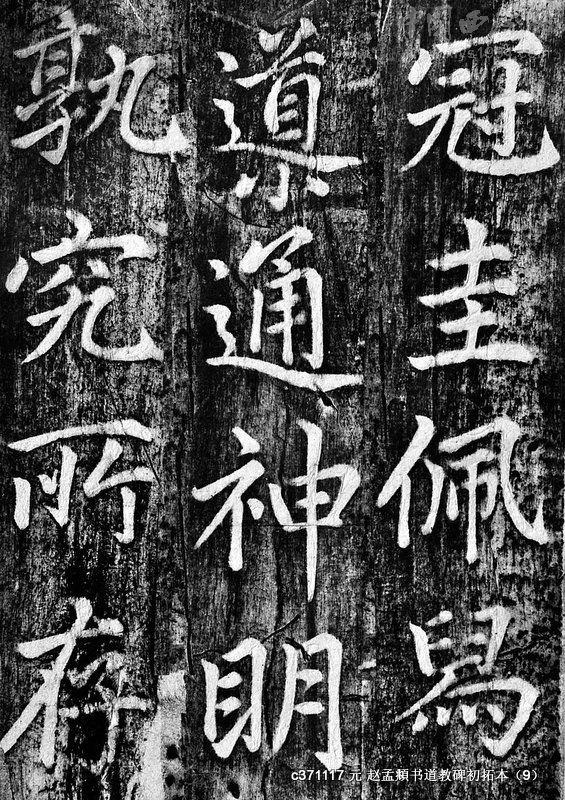 冠圭佩舄
導通神明
孰究所存
c371117 元 赵孟頫书道教碑初拓本（9）